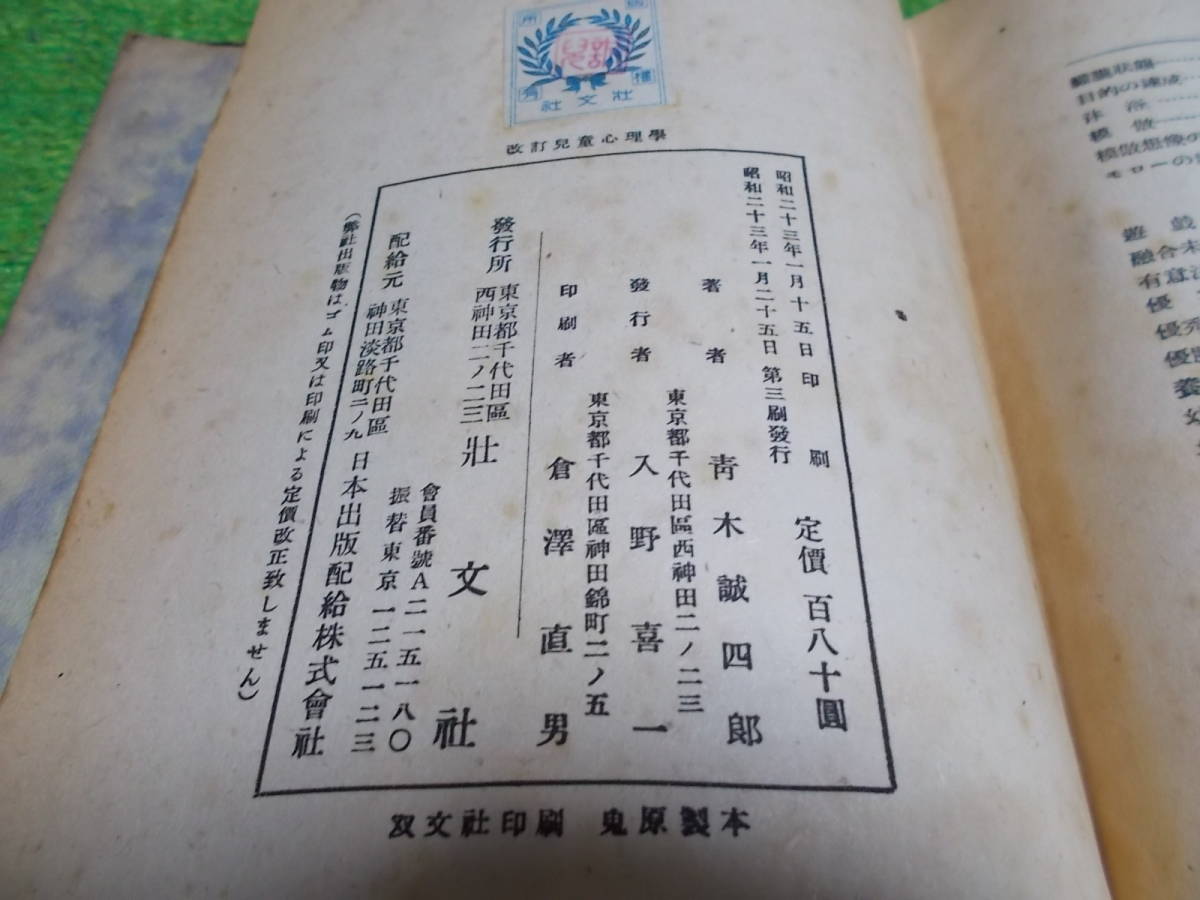 版権所有
壯文社
改訂兒童心理學
昭和二十三年一月十五日印刷
昭和二十三年一月二十五日第三刷發行
定價 百八十圓
著者 靑木誠四郎
東京都千代田區西神田二ノ二三
發行者 入野喜一
東京都千代田區神田錦町二ノ五
印刷者 倉澤直男
發行所 東京都千代田區西神田二ノ二三 壯文社
會員番號A二一五一八〇
振替東京一二五一二三
配給元 東京都千代田區神田淡路町二ノ九 日本出版配給株式會社
(弊社出版物は、ゴム印又は印刷による定價改正致しません)
双文社印刷 鬼原製本
目的の達成
沐浴
模倣
模倣想像の
モローの
遊戯
融合未
有意
優
優秀
養